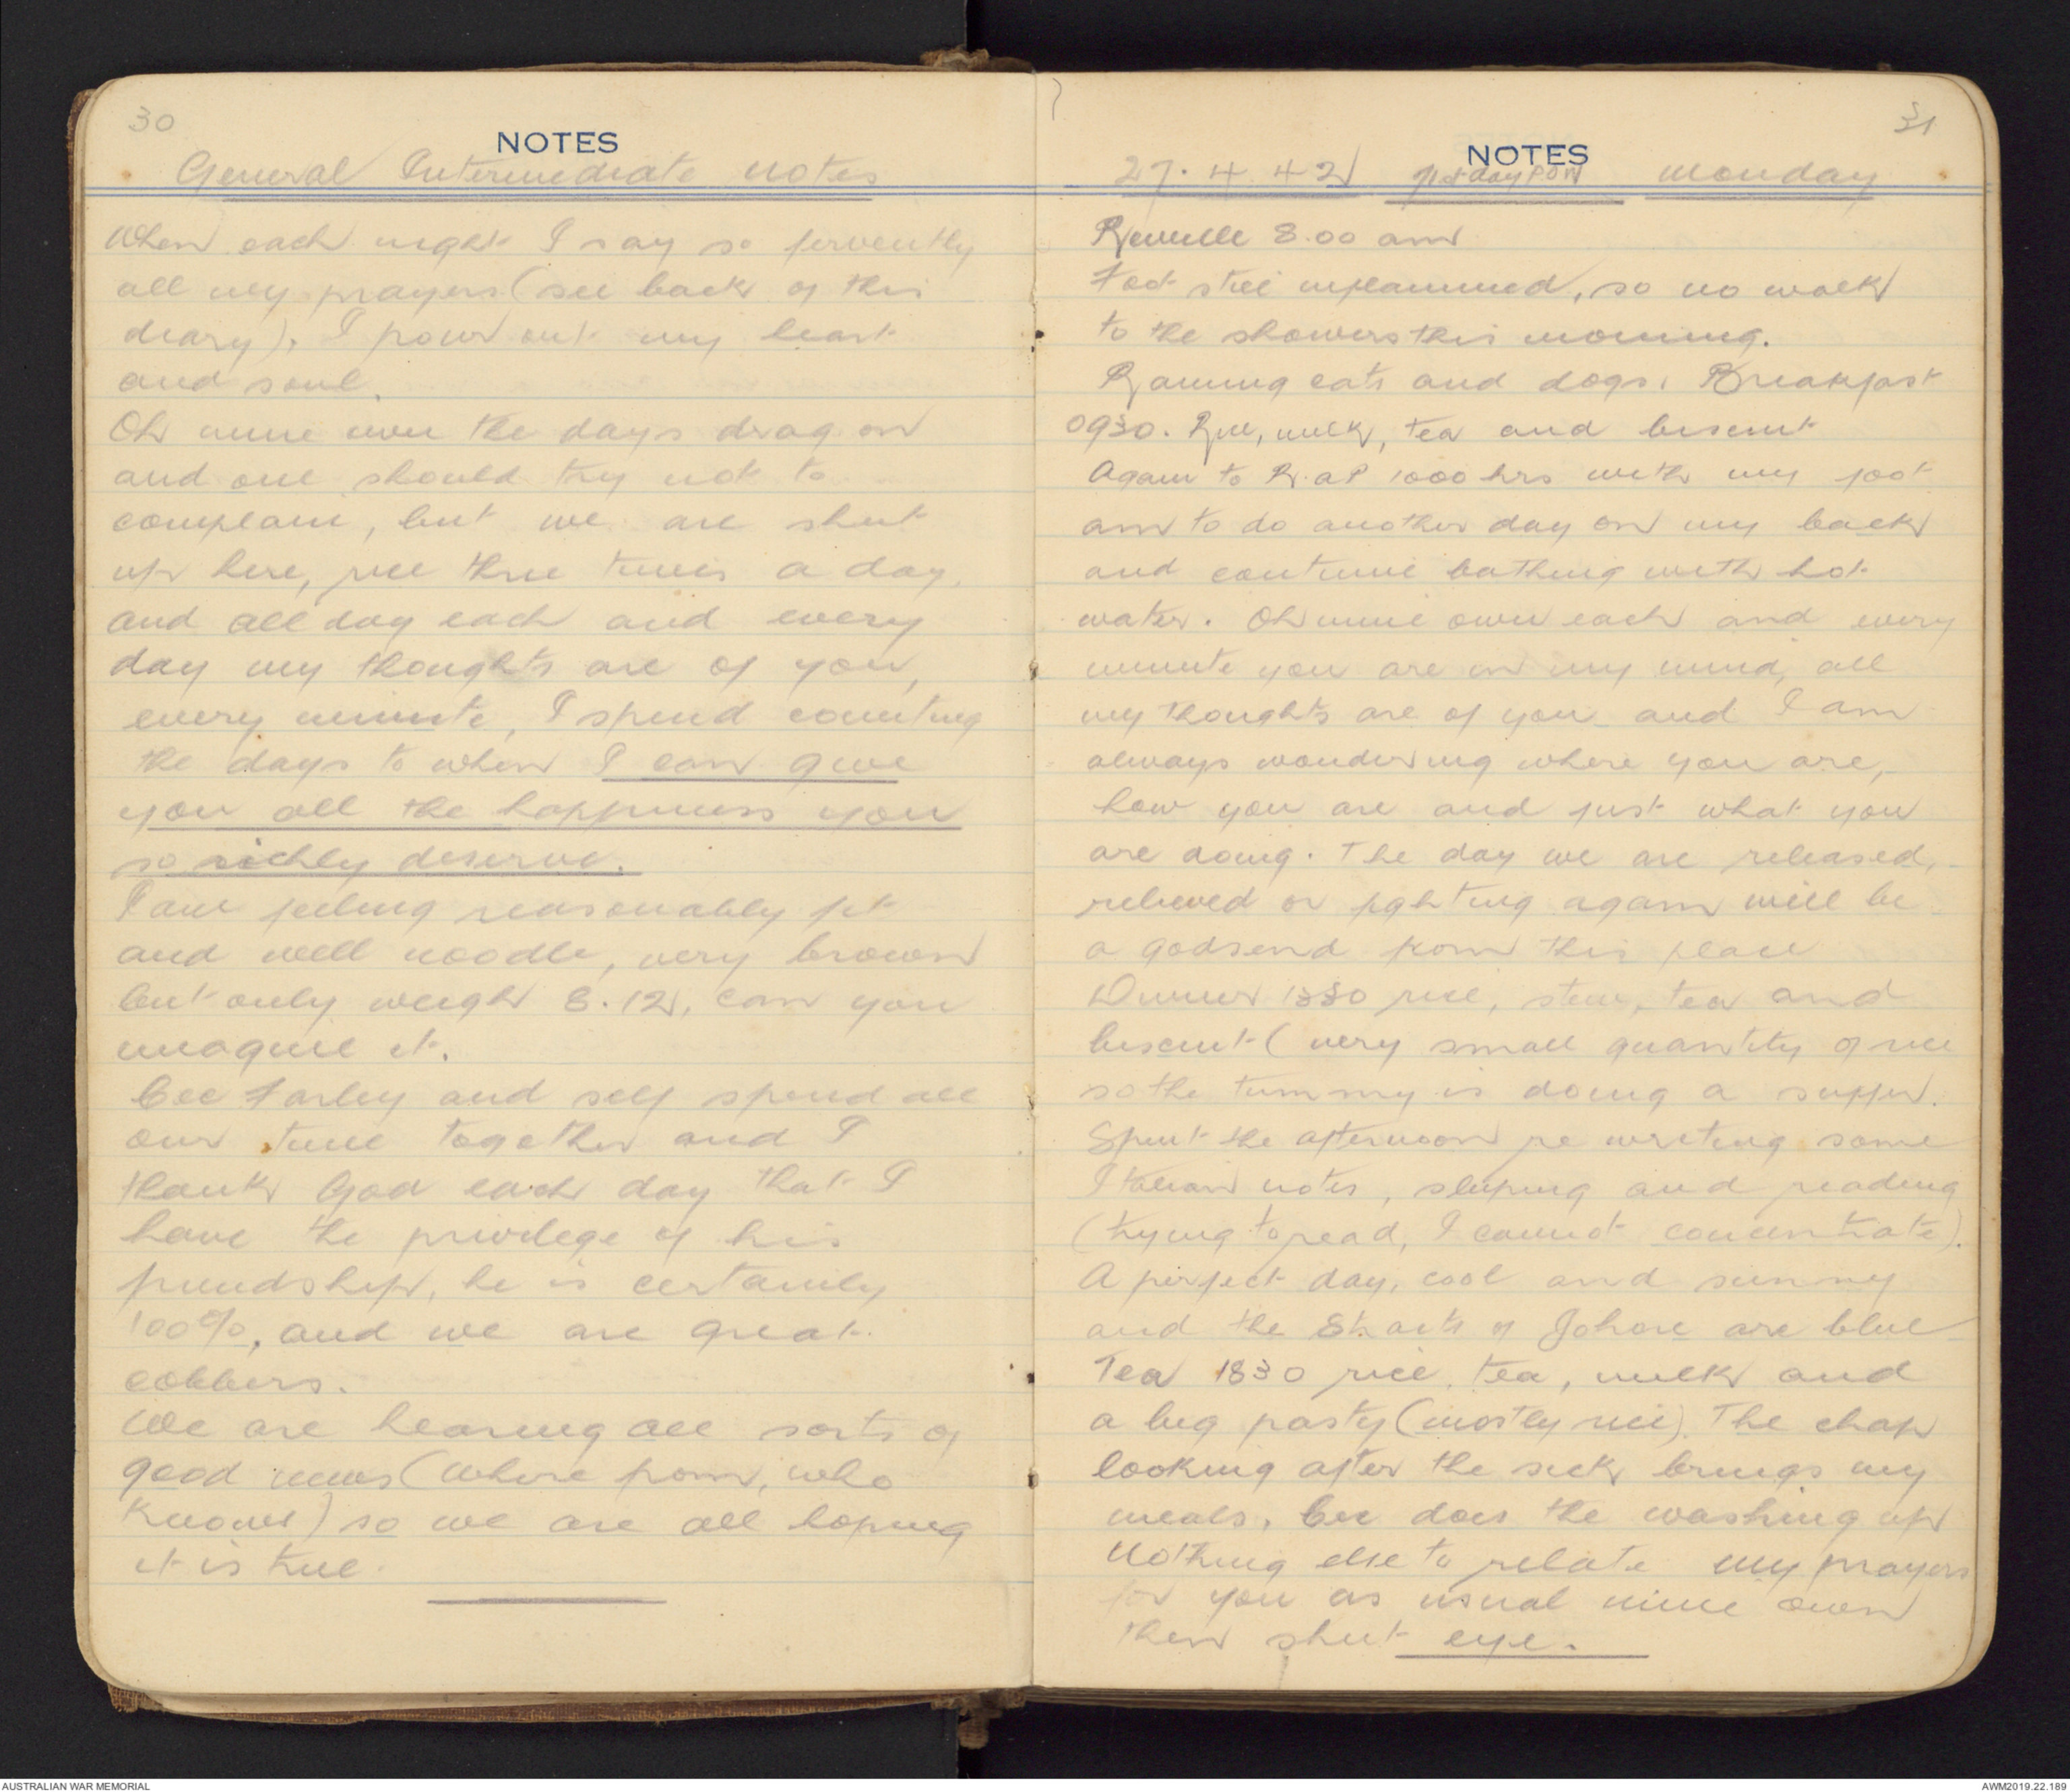 30
NOTES
General Intermediate Notes
When each night I say so fervently
all my prayers (see back of this
diary), I pour out my heart
and soul.
Oh mine own the days drag on
and one should try not to
complain, but we are shut
up here, rice three times a day,
and all day each and every
day my thoughts are of you,
every minute, I spend counting
the days to when I can give
you all the happiness you
so richly deserve.
I am feeling reasonably fit
and well noodle, very brown
but only weigh 8.12, can you
imagine it.
Cec Farley and self spend all
our time together and I
thank God each day that I
have the privilege of his
friendship, he is certainly
100%, and we are great
cobbers.
We are hearing all sorts of
good news (where from, who
knows) so we are all hoping
it is true.
31
NOTES
27.4.42 71st day POW Monday
Reveille 8.00 am
Foot still inflammed, so no walk
to the showers this morning.
Raining cats and dogs. Breakfast
0930. Rice, milk, tea and biscuit
Again to R.A.P 1000 hrs with my foot
am to do another day on my back
and continue bathing with hot
water. Oh mine own each and every
minute you are in my mind, all
my thoughts are of you and I am
always wondering where you are,
how you are and just what you
are doing. The day we are released,
relieved or fighting again will be
a godsend from this place
Dinner 1330 rice, stew, tea and
biscuit (very small quantity of rice
so the tummy is doing a suffer.
Spent the afternoon re writing some
Italian notes, sleeping and reading
(trying to read, I cannot concentrate).
A perfect day, cool and sunny
and the Straits of Johore are blue
Tea 1830 rice, tea, milk and
a big pasty (mostly rice). The chap
looking after the sick brings my
meals, Cec does the washing up
Nothing else to relate my prayers
for you as usual mine own
then shut eye.
AUSTRALIAN WAR MEMORIAL
AWM2019.22.189